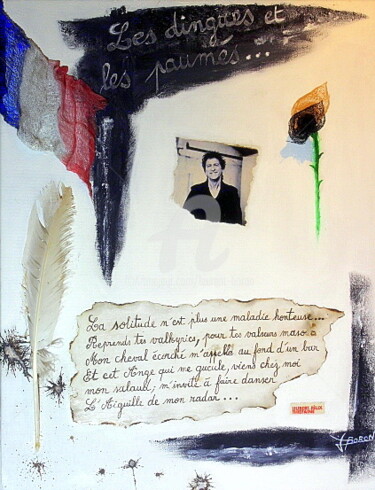 Les dingues et
les paumés...
La solitude n'est plus une maladie honteuse...
Reprends tes valkyries pour tes valseurs maso.
Mon cheval écorché m'appelle au fond d'un bar
Et cet Ange qui me gueule, viens chez moi
mon salaud, m'invite à faire danser
L'Aiguille de mon radar...
BORON